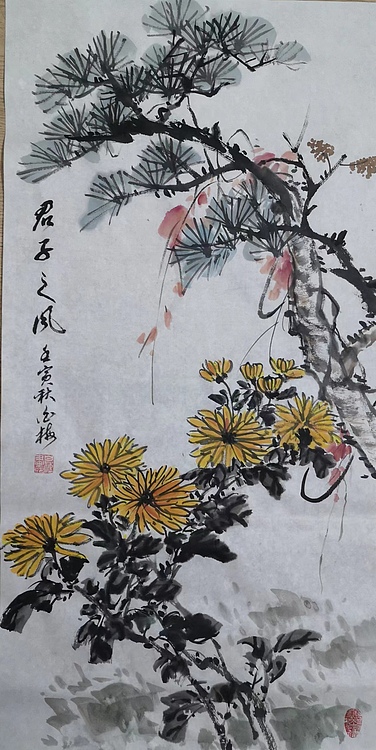 君子之风
壬寅秋 启梅